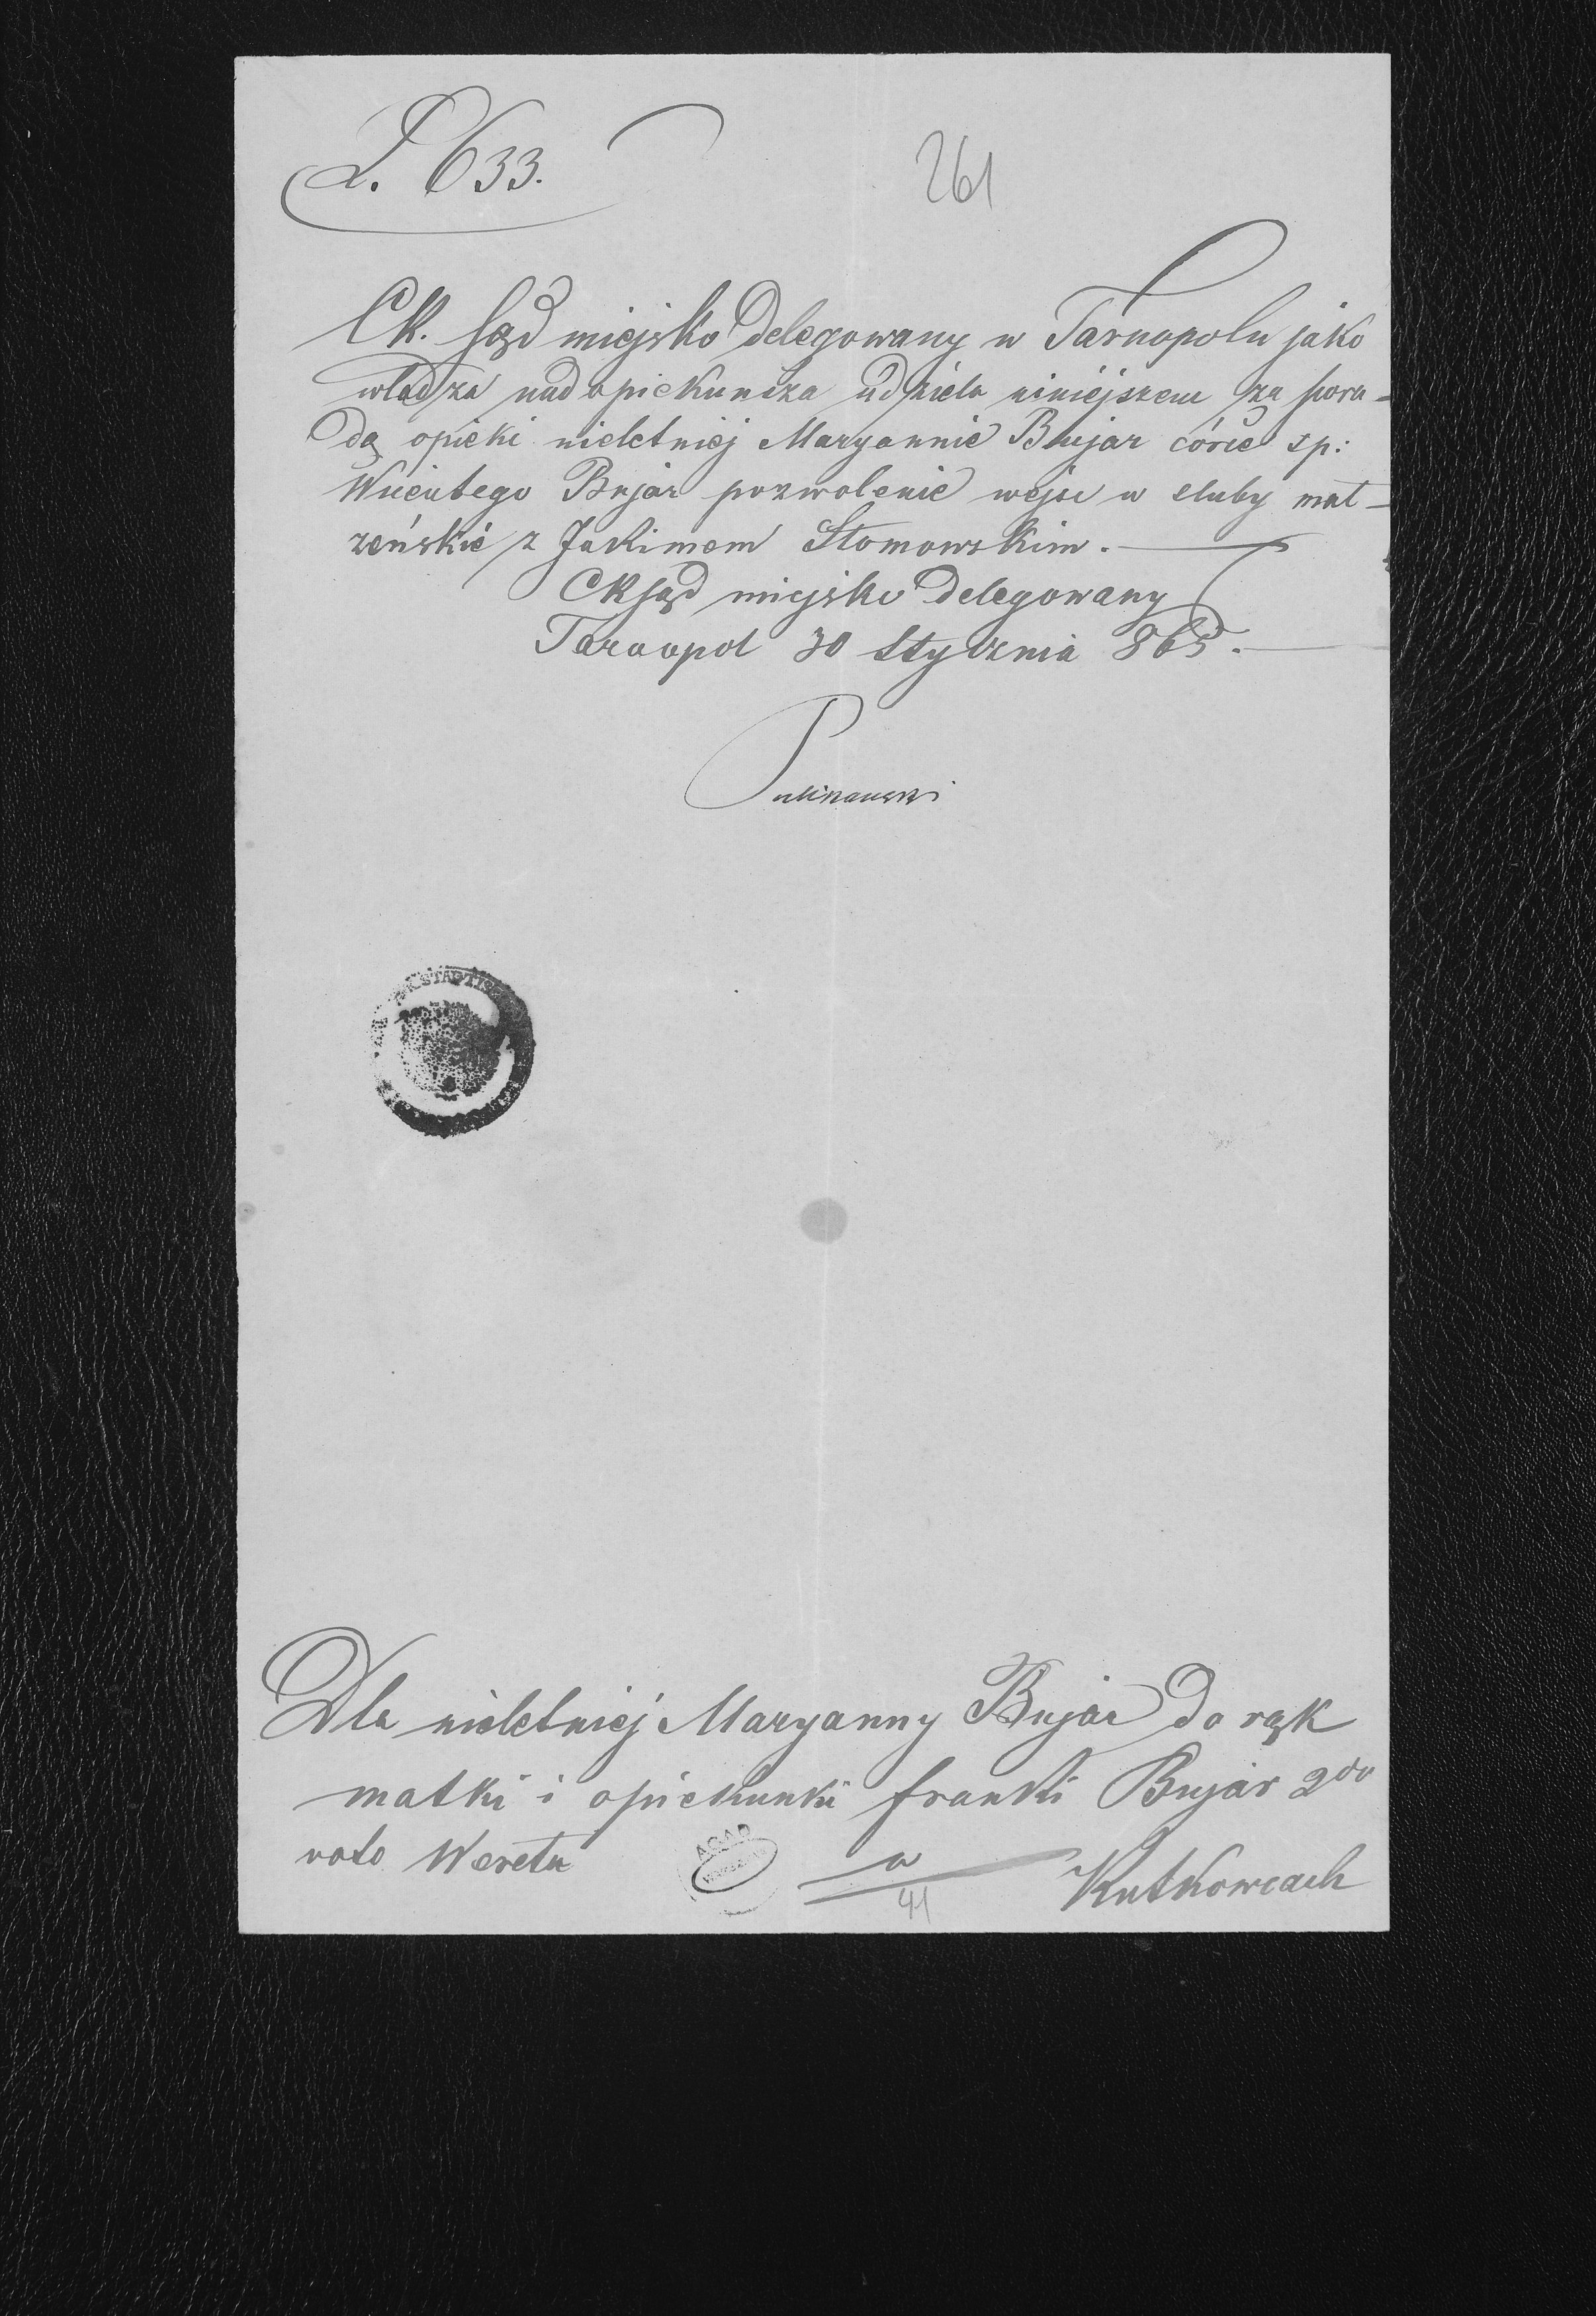 L. 633.
261
CK. Sąd miejsko delegowany w Tarnopolu jako
władza nadopiekuńcza udziela niniejszem za pora-
dą opieki nieletniej Maryannie Bujar córce sp:
Bujar pozwolenie wejść w śluby mał-
żeńskie z Jakimem Słomowskim.
CK Sąd miejsko delegowany
Tarnopol 30 Stycznia 865.
Dla nieletniej Maryanny Bujar do rąk
matki i opiekunki Franki Bujar 2do
voto Wereta w Kutkowcach
AGAD
41